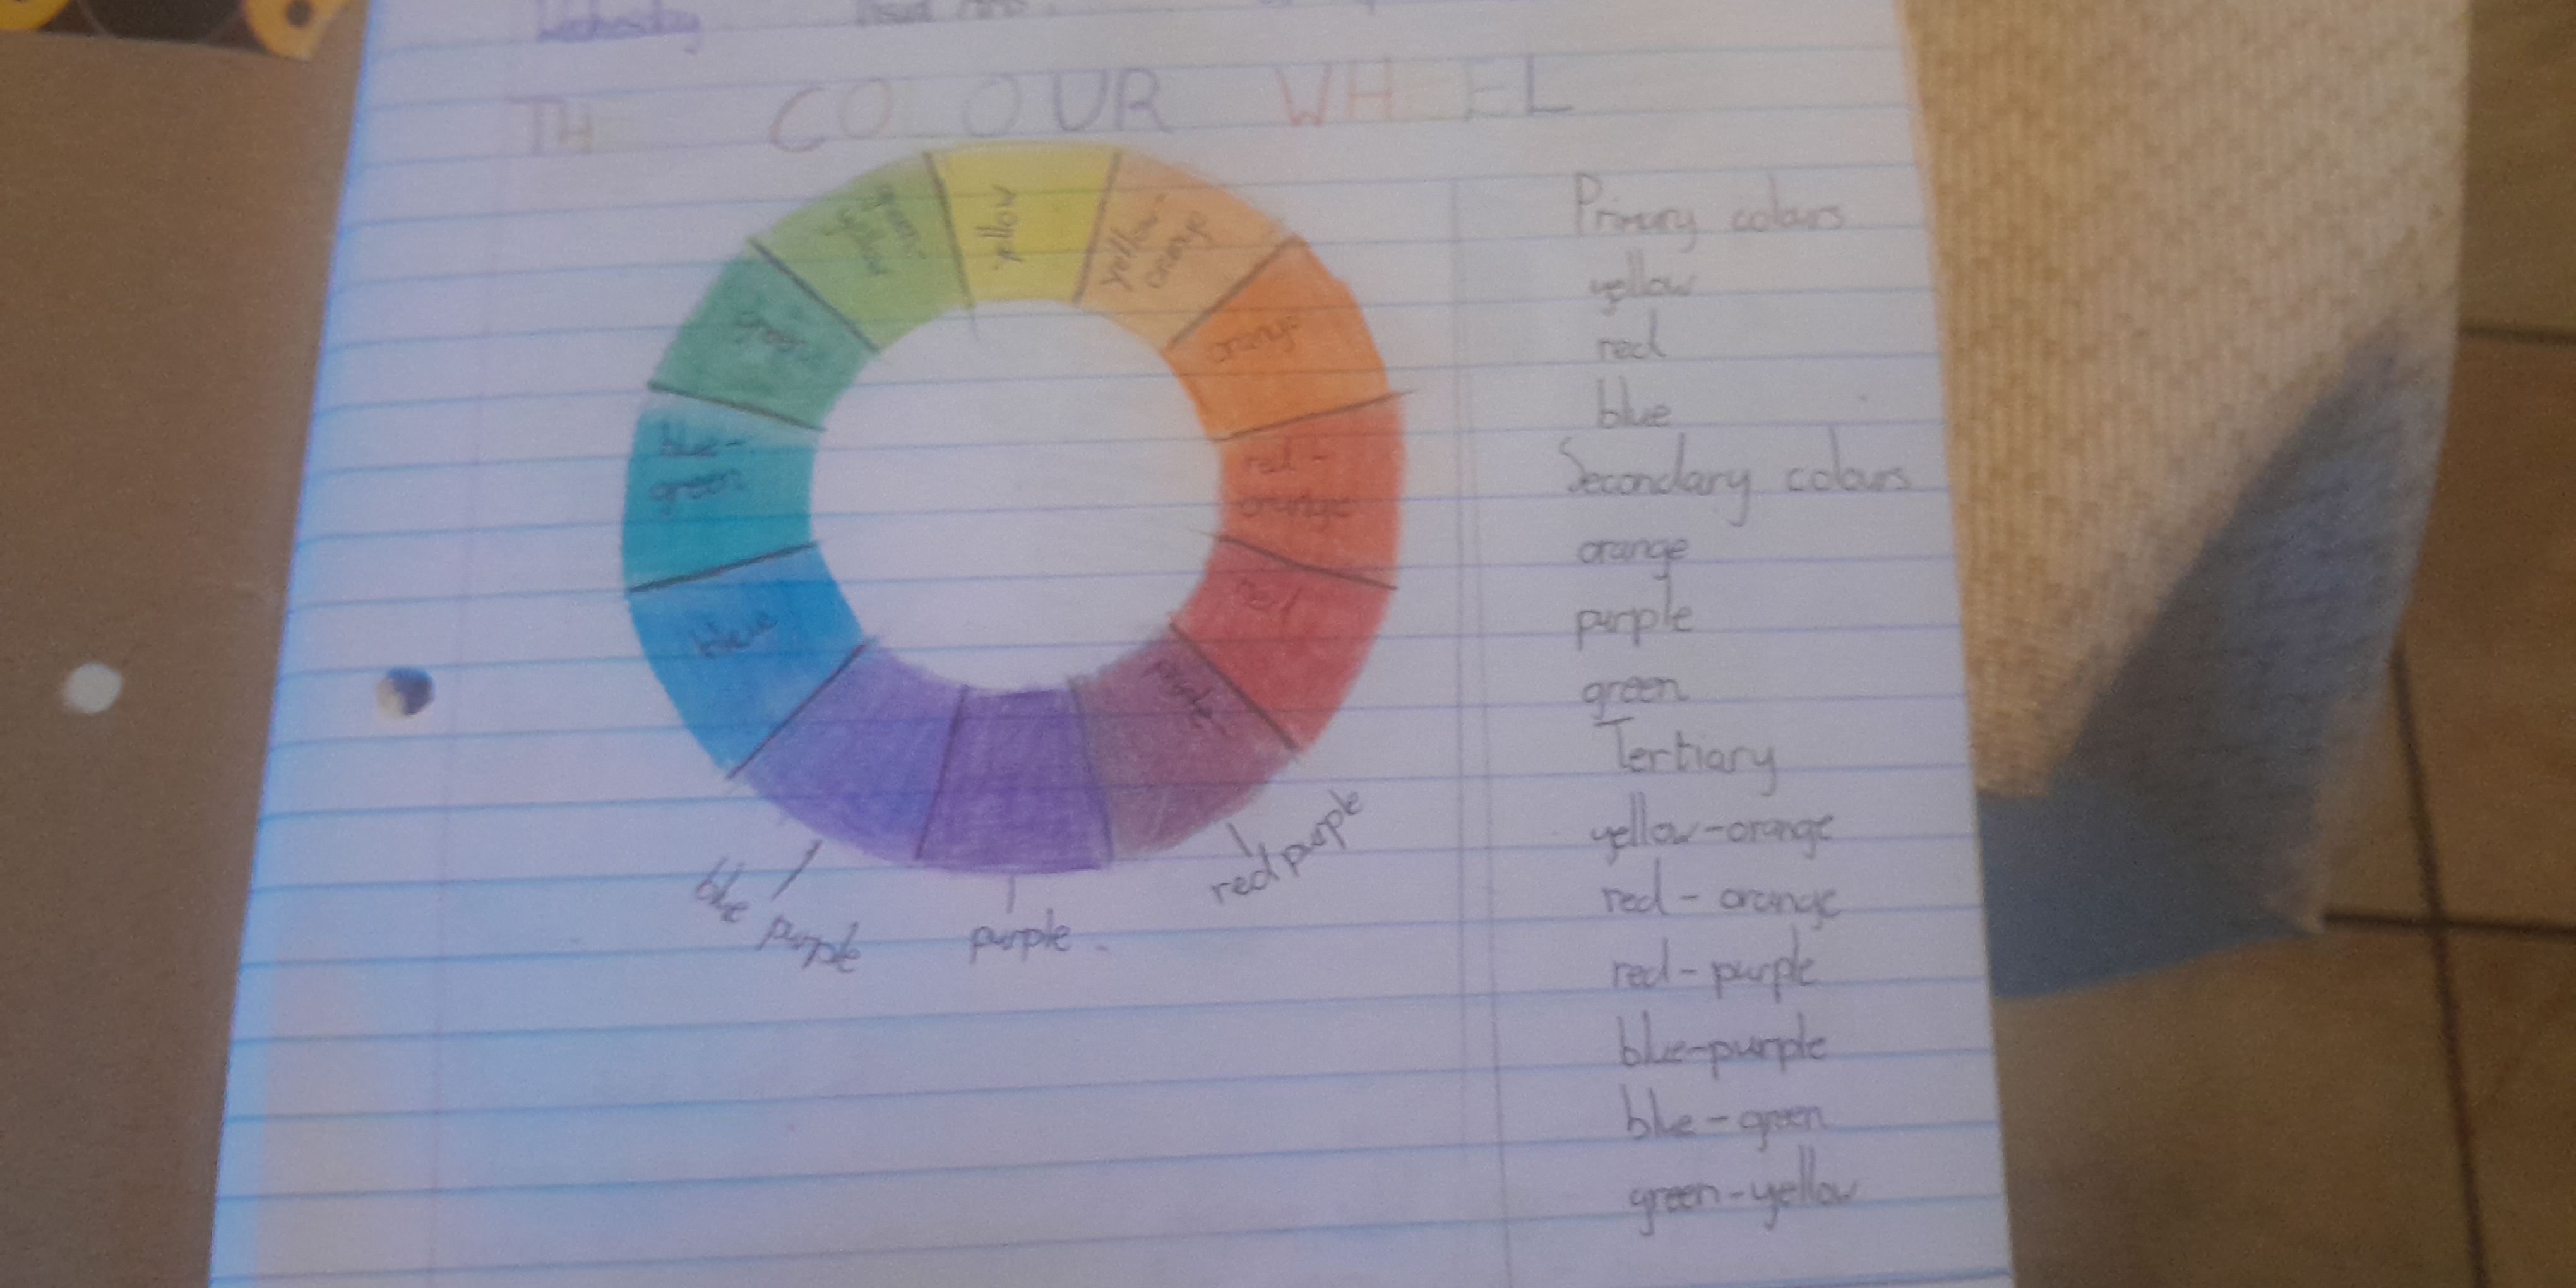 Wednesday
Visual Arts
TH COLOUR WHEEL
yellow
yellow-
orange
orange
red-
orange
red
purple
red purple
purple
blue purple
blue
blue-
green
green
green-
yellow
Primary colours
yellow
red
blue
Secondary colours
orange
purple
green
Tertiary
yellow-orange
red-orange
red-purple
blue-purple
blue-green
green-yellow